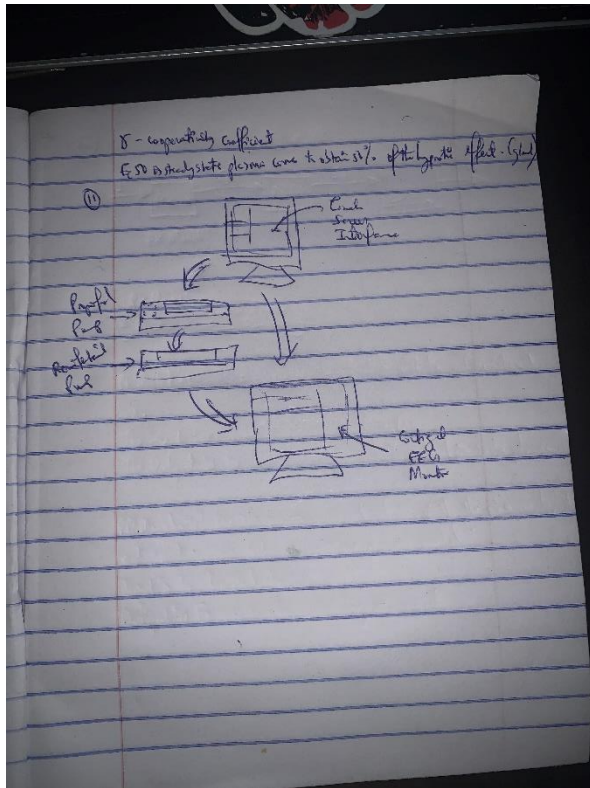 γ - cooperativity coefficient
E50 is steady state plasma conc to obtain 50% of the hypnotic effect.
11
Screen
Propofol
Pump
Remifentanil
Pump
EEG
Monitor